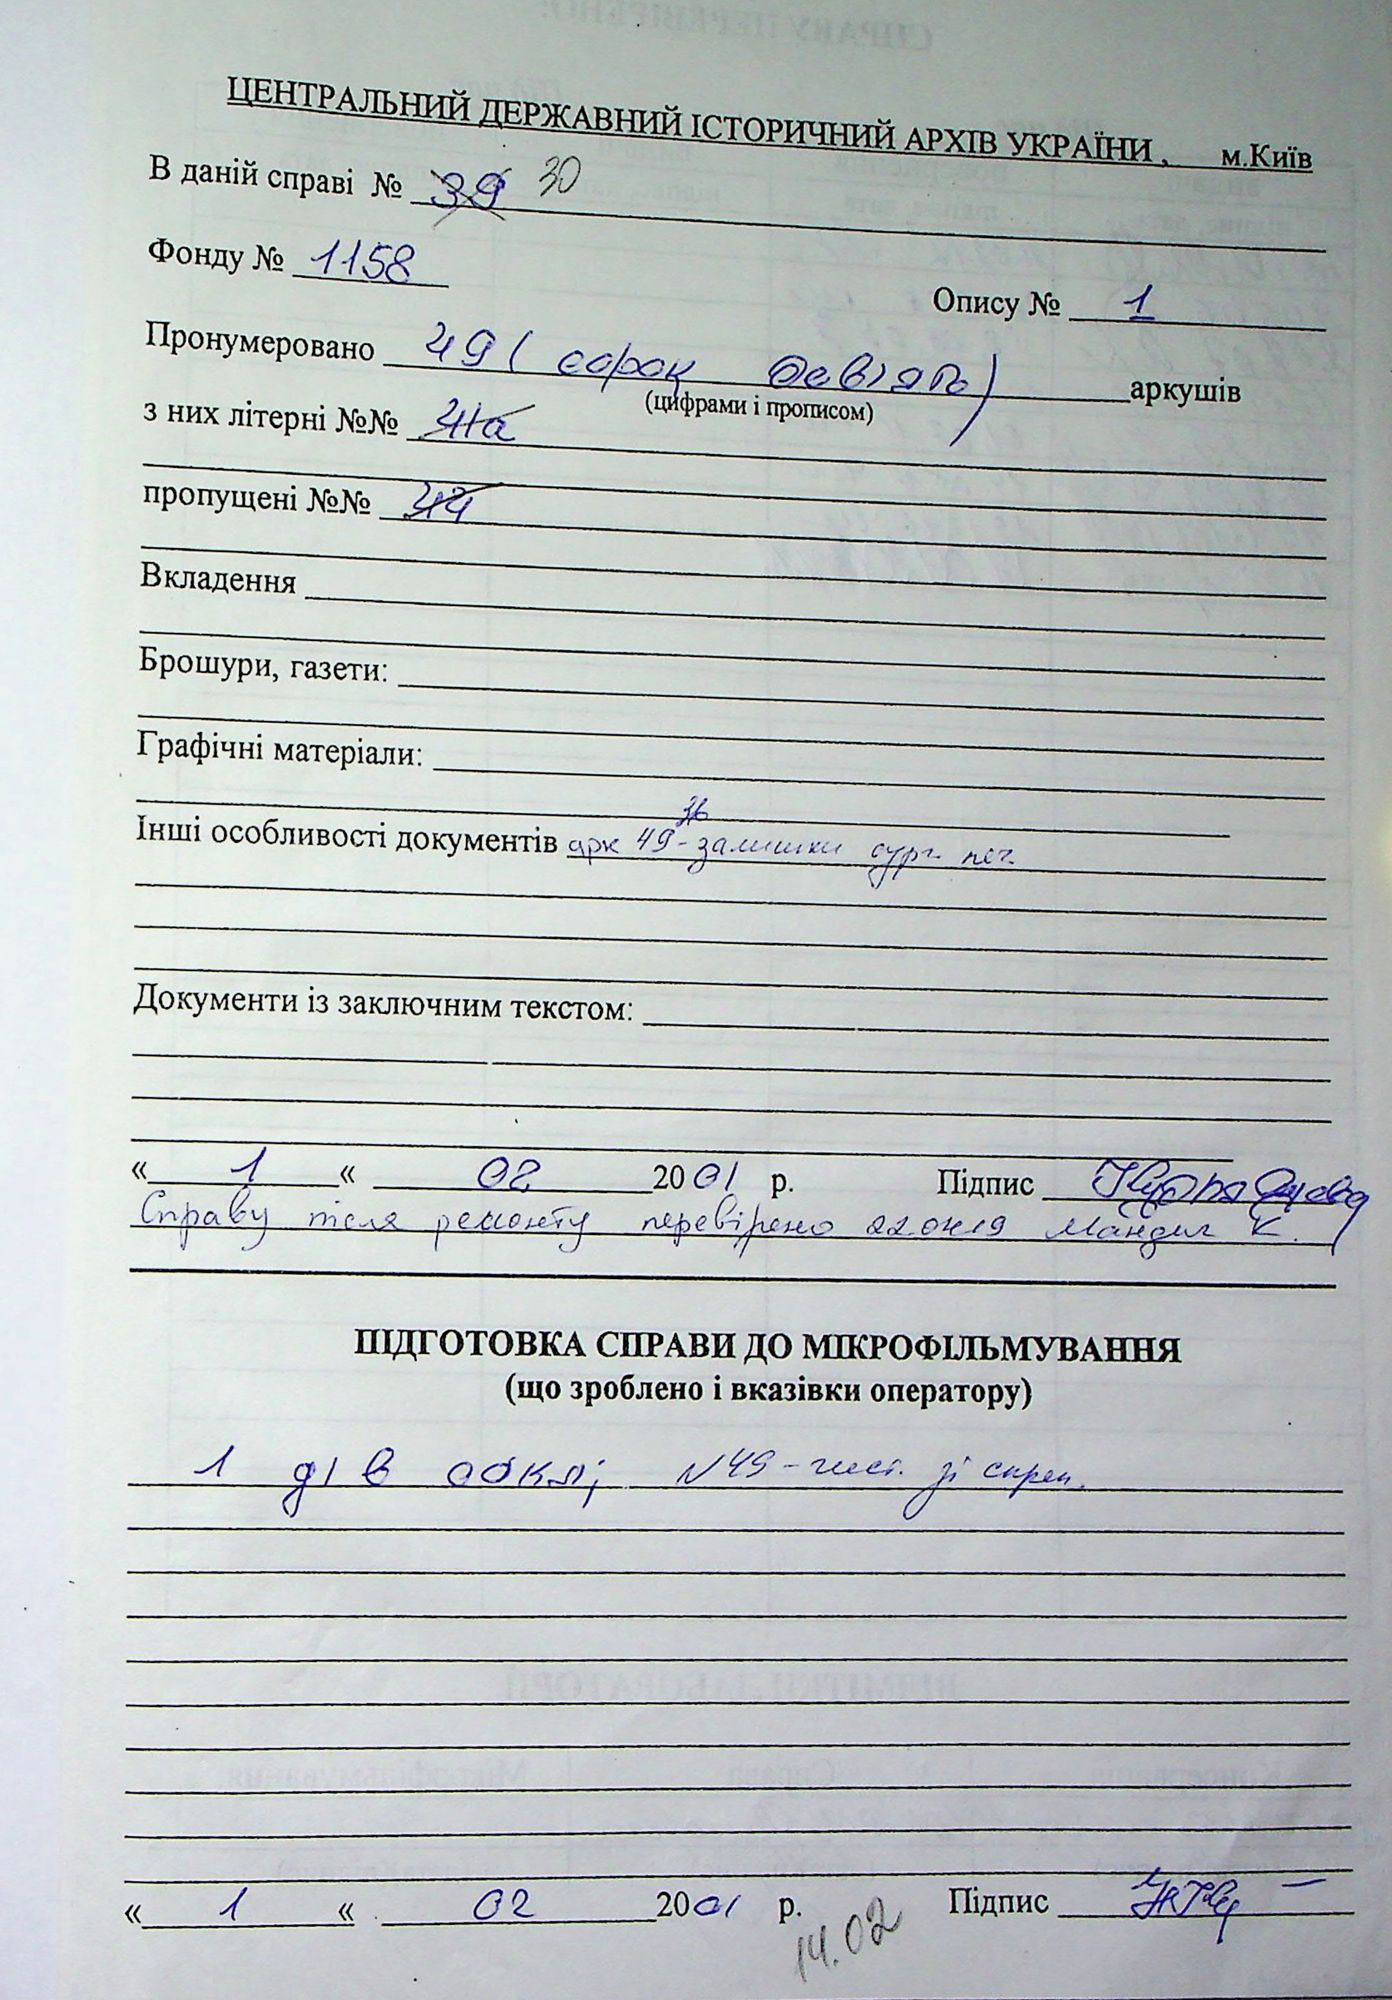 ЦЕНТРАЛЬНИЙ ДЕРЖАВНИЙ ІСТОРИЧНИЙ АРХІВ УКРАЇНИ , м.Київ
В даній справі № 39 30
Фонду № 1158
Опису № 1
Пронумеровано 49 ( сорок дев'ять) аркушів
(цифрами і прописом)
з них літерні №№ 41а
пропущені №№ 44
Вкладення
Брошури, газети:
Графічні матеріали:
Інші особливості документів арк 49 - залишки сург. печ.
Документи із заключним текстом:
« 1 « 02 2001 р. Підпис
Справу після ремонту перевірено
ПІДГОТОВКА СПРАВИ ДО МІКРОФІЛЬМУВАННЯ
(що зроблено і вказівки оператору)
1 д/ в обкл; №49 - чист. зі скреп.
« 1 « 02 2001 р. Підпис
14.02